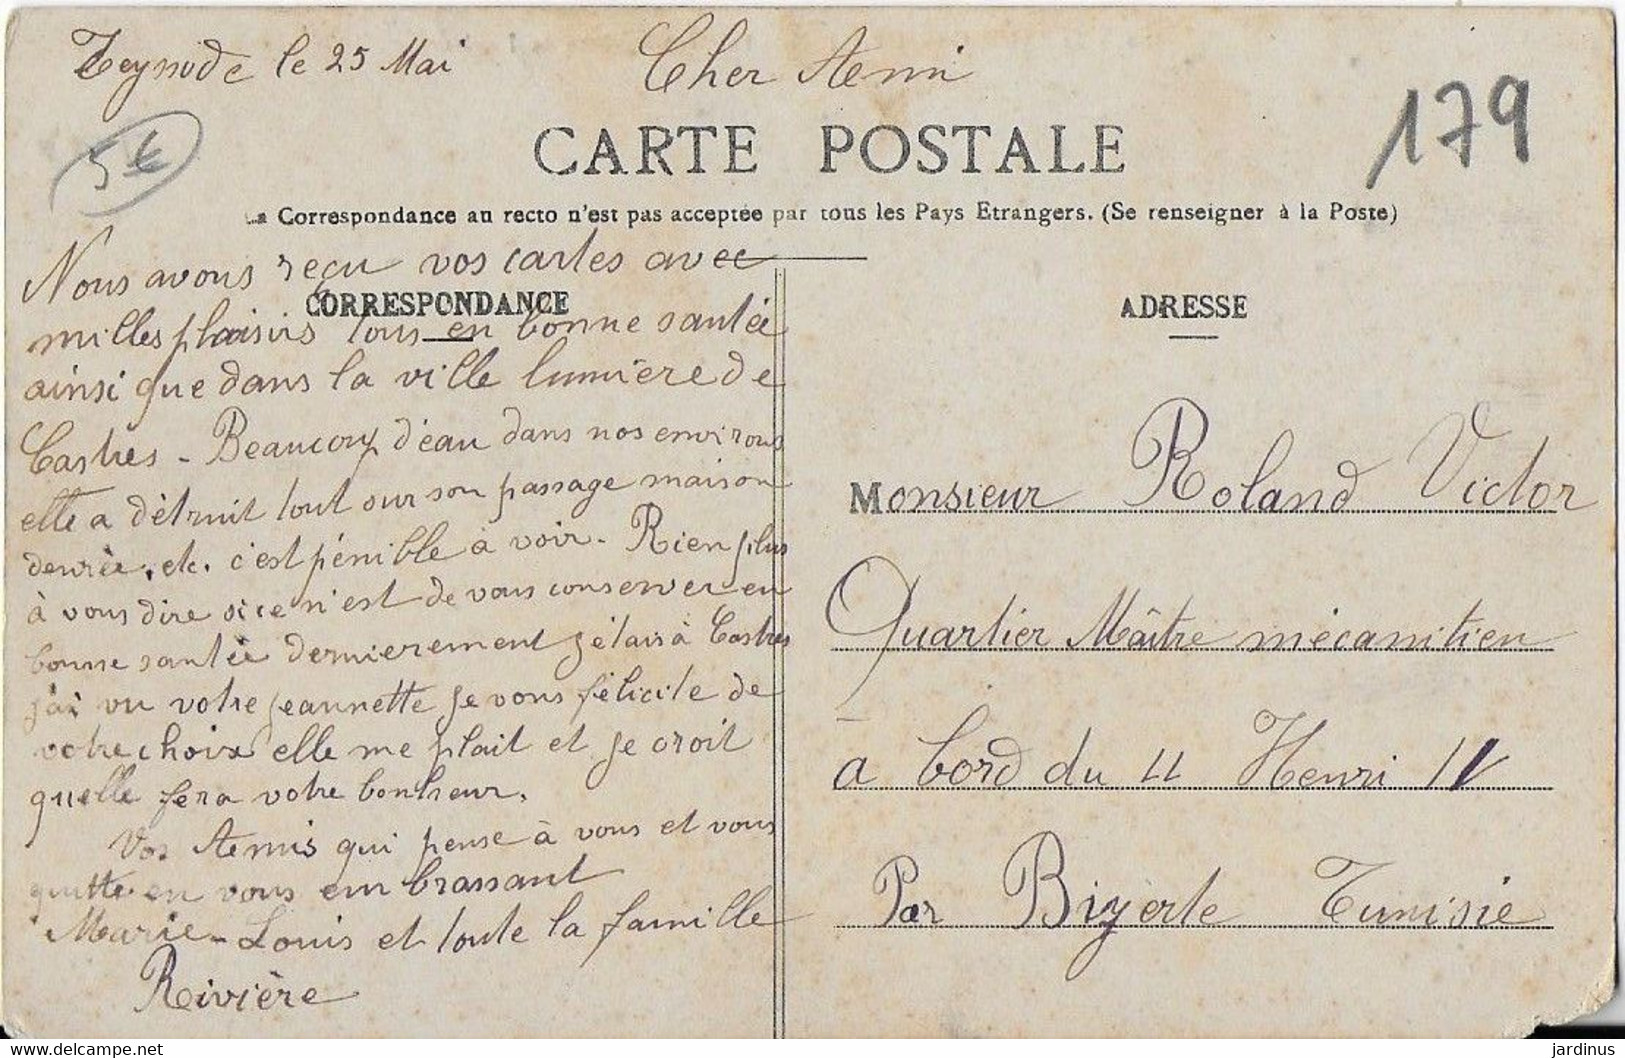 Teyssode le 25 Mai
Cher Ami
5€
179
CARTE POSTALE
La Correspondance au recto n'est pas acceptée par tous les Pays Etrangers. (Se renseigner à la Poste)
CORRESPONDANCE
Nous avons reçu vos cartes avec
milles plaisirs tous en bonne santée
ainsi que dans la ville lumière de
Castres - Beaucoup d'eau dans nos environs
elle a détruit tout sur son passage maison
denrée, etc. c'est pénible à voir. Rien plus
à vous dire si ce n'est de vous conserver en
bonne santée dernierement j'étais à Castres
j'ai vu votre jeannette je vous félicite de
votre choix elle me plait et je croit
quelle fera votre bonheur.
Vos Amis qui pense à vous et vous
quitte en vous embrassant
Marie-Louis et toute la famille
Rivière
ADRESSE
Monsieur Roland Victor
Quartier Maître mécanitien
a bord du " Henri IV
Par Bizerte Tunisie
jardinus
delcampe.net